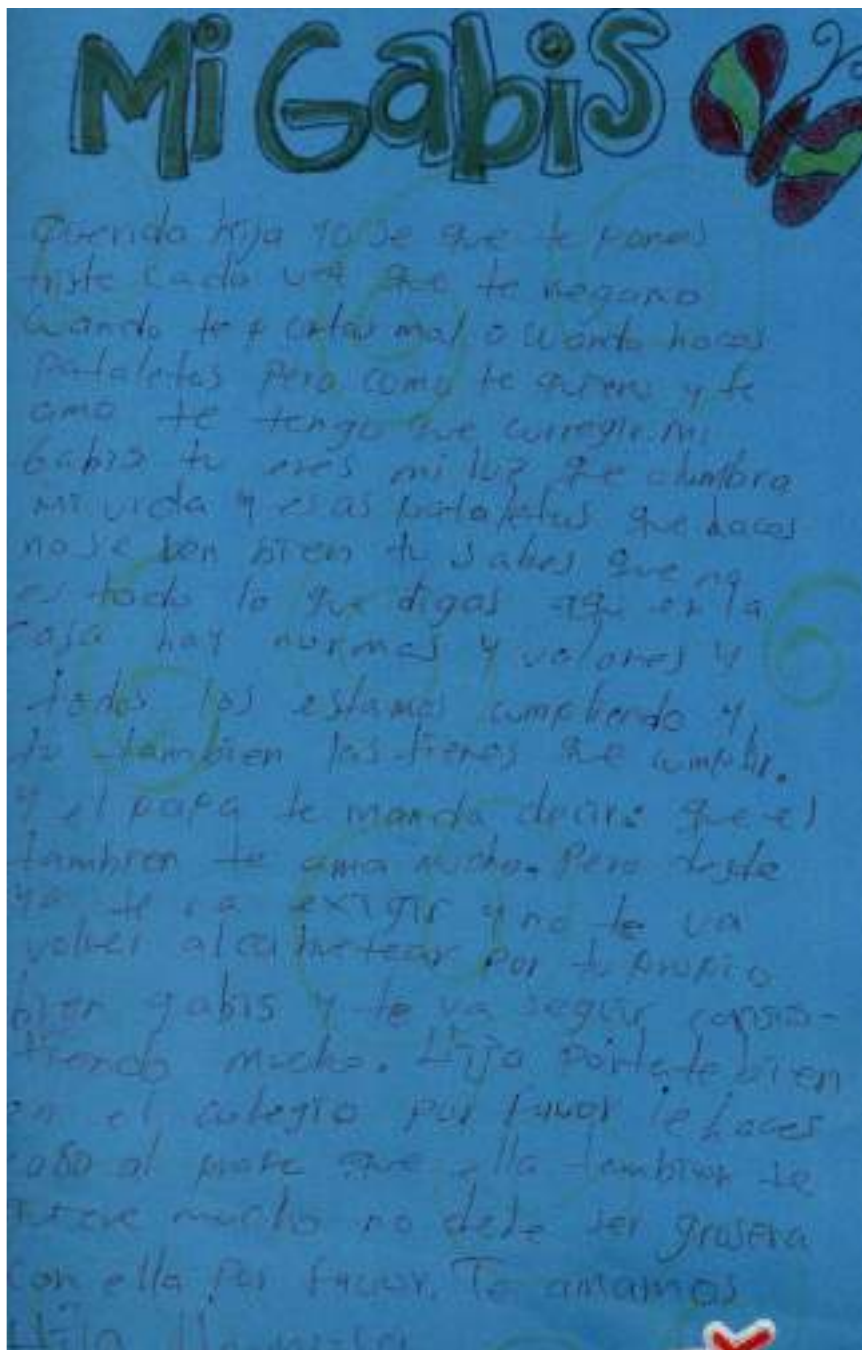 Mi Gabis
Querida hija yo se que te pones
triste cada vez que te regaño
cuando te portas mal o cuando haces
pataletas pero como te quiero y te
amo te tengo que corregir. Mi
Gabis tu eres mi luz que alumbra
mi vida y esas pataletas que haces
no se ven bien tu sabes que no
es todo lo que digas aqui en la
casa hay normas y valores y
todos los estamos cumpliendo y
tu tambien los tienes que cumplir.
y el papa te manda decir: que el
tambien te ama mucho. Pero desde
ya te va exigir y no te va
volver alcahuetear por tu propio
bien gabis y te va seguir consin-
tiendo mucho. Hija portate bien
en el colegio por favor le haces
caso al profe que ella tambien te
quiere mucho no debe ser grosera
con ella por favor. Te amamos
Hija